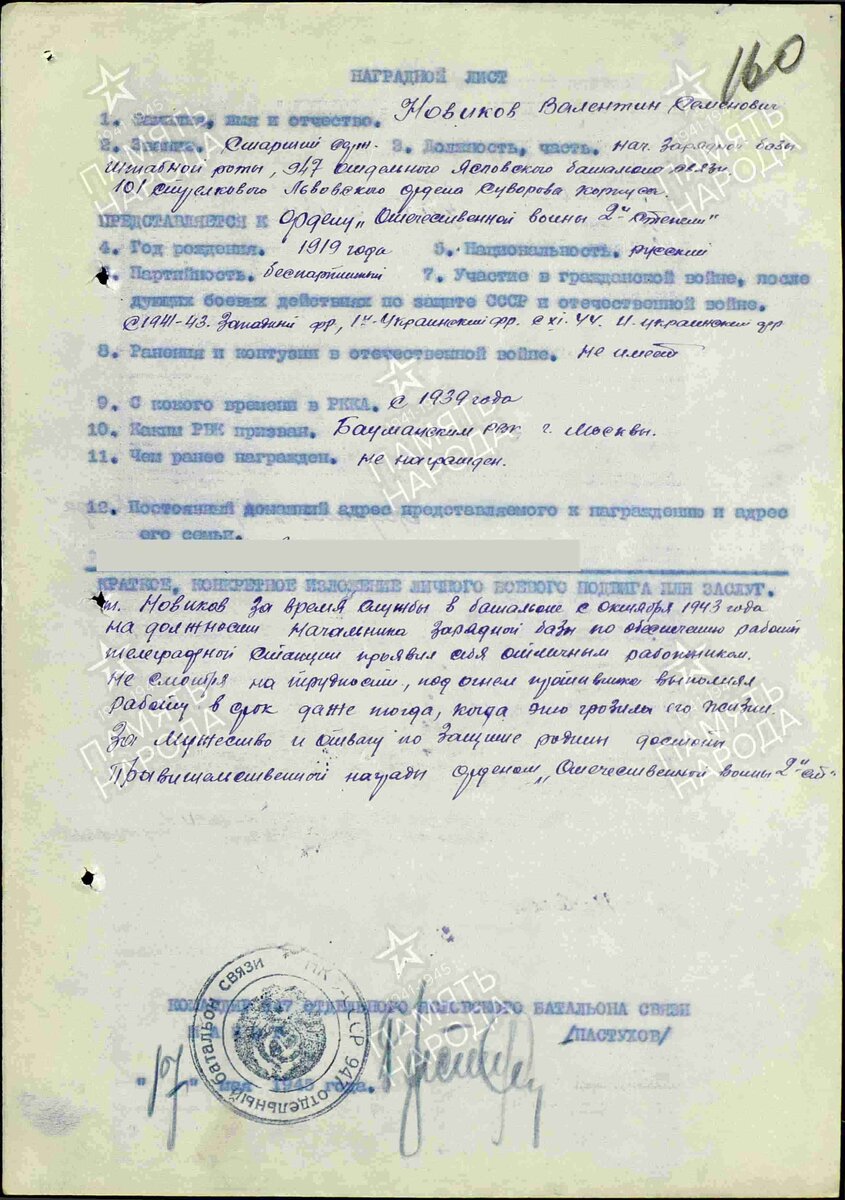 160
НАГРАДНОЙ ЛИСТ
1. Фамилия, имя и отчество. Новиков Валентин Семенович
2. Звание. Старший сэт. 3. Должность, часть. нач. зарядной базы
штабной роты, 947 отдельного Ясловского батальона связи
101 стрелкового Львовского ордена Суворова корпуса.
ПРЕДСТАВЛЯЕТСЯ К ордену „Отечественной войны 2й степени"
4. Год рождения. 1919 года 5. Национальность. русский
6. Партийность. беспартийный 7. Участие в гражданской войне, после
дующих боевых действиях по защите СССР и отечественной войне.
С 1941-43. Западный фр, 1й-Украинский фр. с XI.44. 4-украинский фр
8. Ранения и контузии в отечественной войне. не имеет
9. С кокого времени в РККА. с 1939 года
10. Каким РВК призван. Бауманским РВК г. Москвы.
11. Чем ранее награжден. не награжден.
12. Постоянный домашний адрес представляемого к награждению и адрес
его семьи.
КРАТКОЕ, КОНКРЕТНОЕ ИЗЛОЖЕНИЕ ЛИЧНОГО БОЕВОГО ПОДВИГА ИЛИ ЗАСЛУГ.
т. Новиков за время службы в батальоне с октября 1943 года
на должности начальника зарядной базы по обеспечению работы
телеграфной станции проявил себя отличным работником.
Не смотря на трудности, под огнем противника выполнял
работу в срок даже тогда, когда это грозило его жизни.
За мужество и отвагу по защите родины достоин
Правительственной награды орденом „Отечественной войны 2й ст"
КОМАНДИР 947 ОТДЕЛЬНОГО ЯСЛОВСКОГО БАТАЛЬОНА СВЯЗИ
/ПАСТУХОВ/
"17" мая 1945 года.
НКО СССР 947 отдельный батальон связи
ПАМЯТЬ НАРОДА
1941-1945